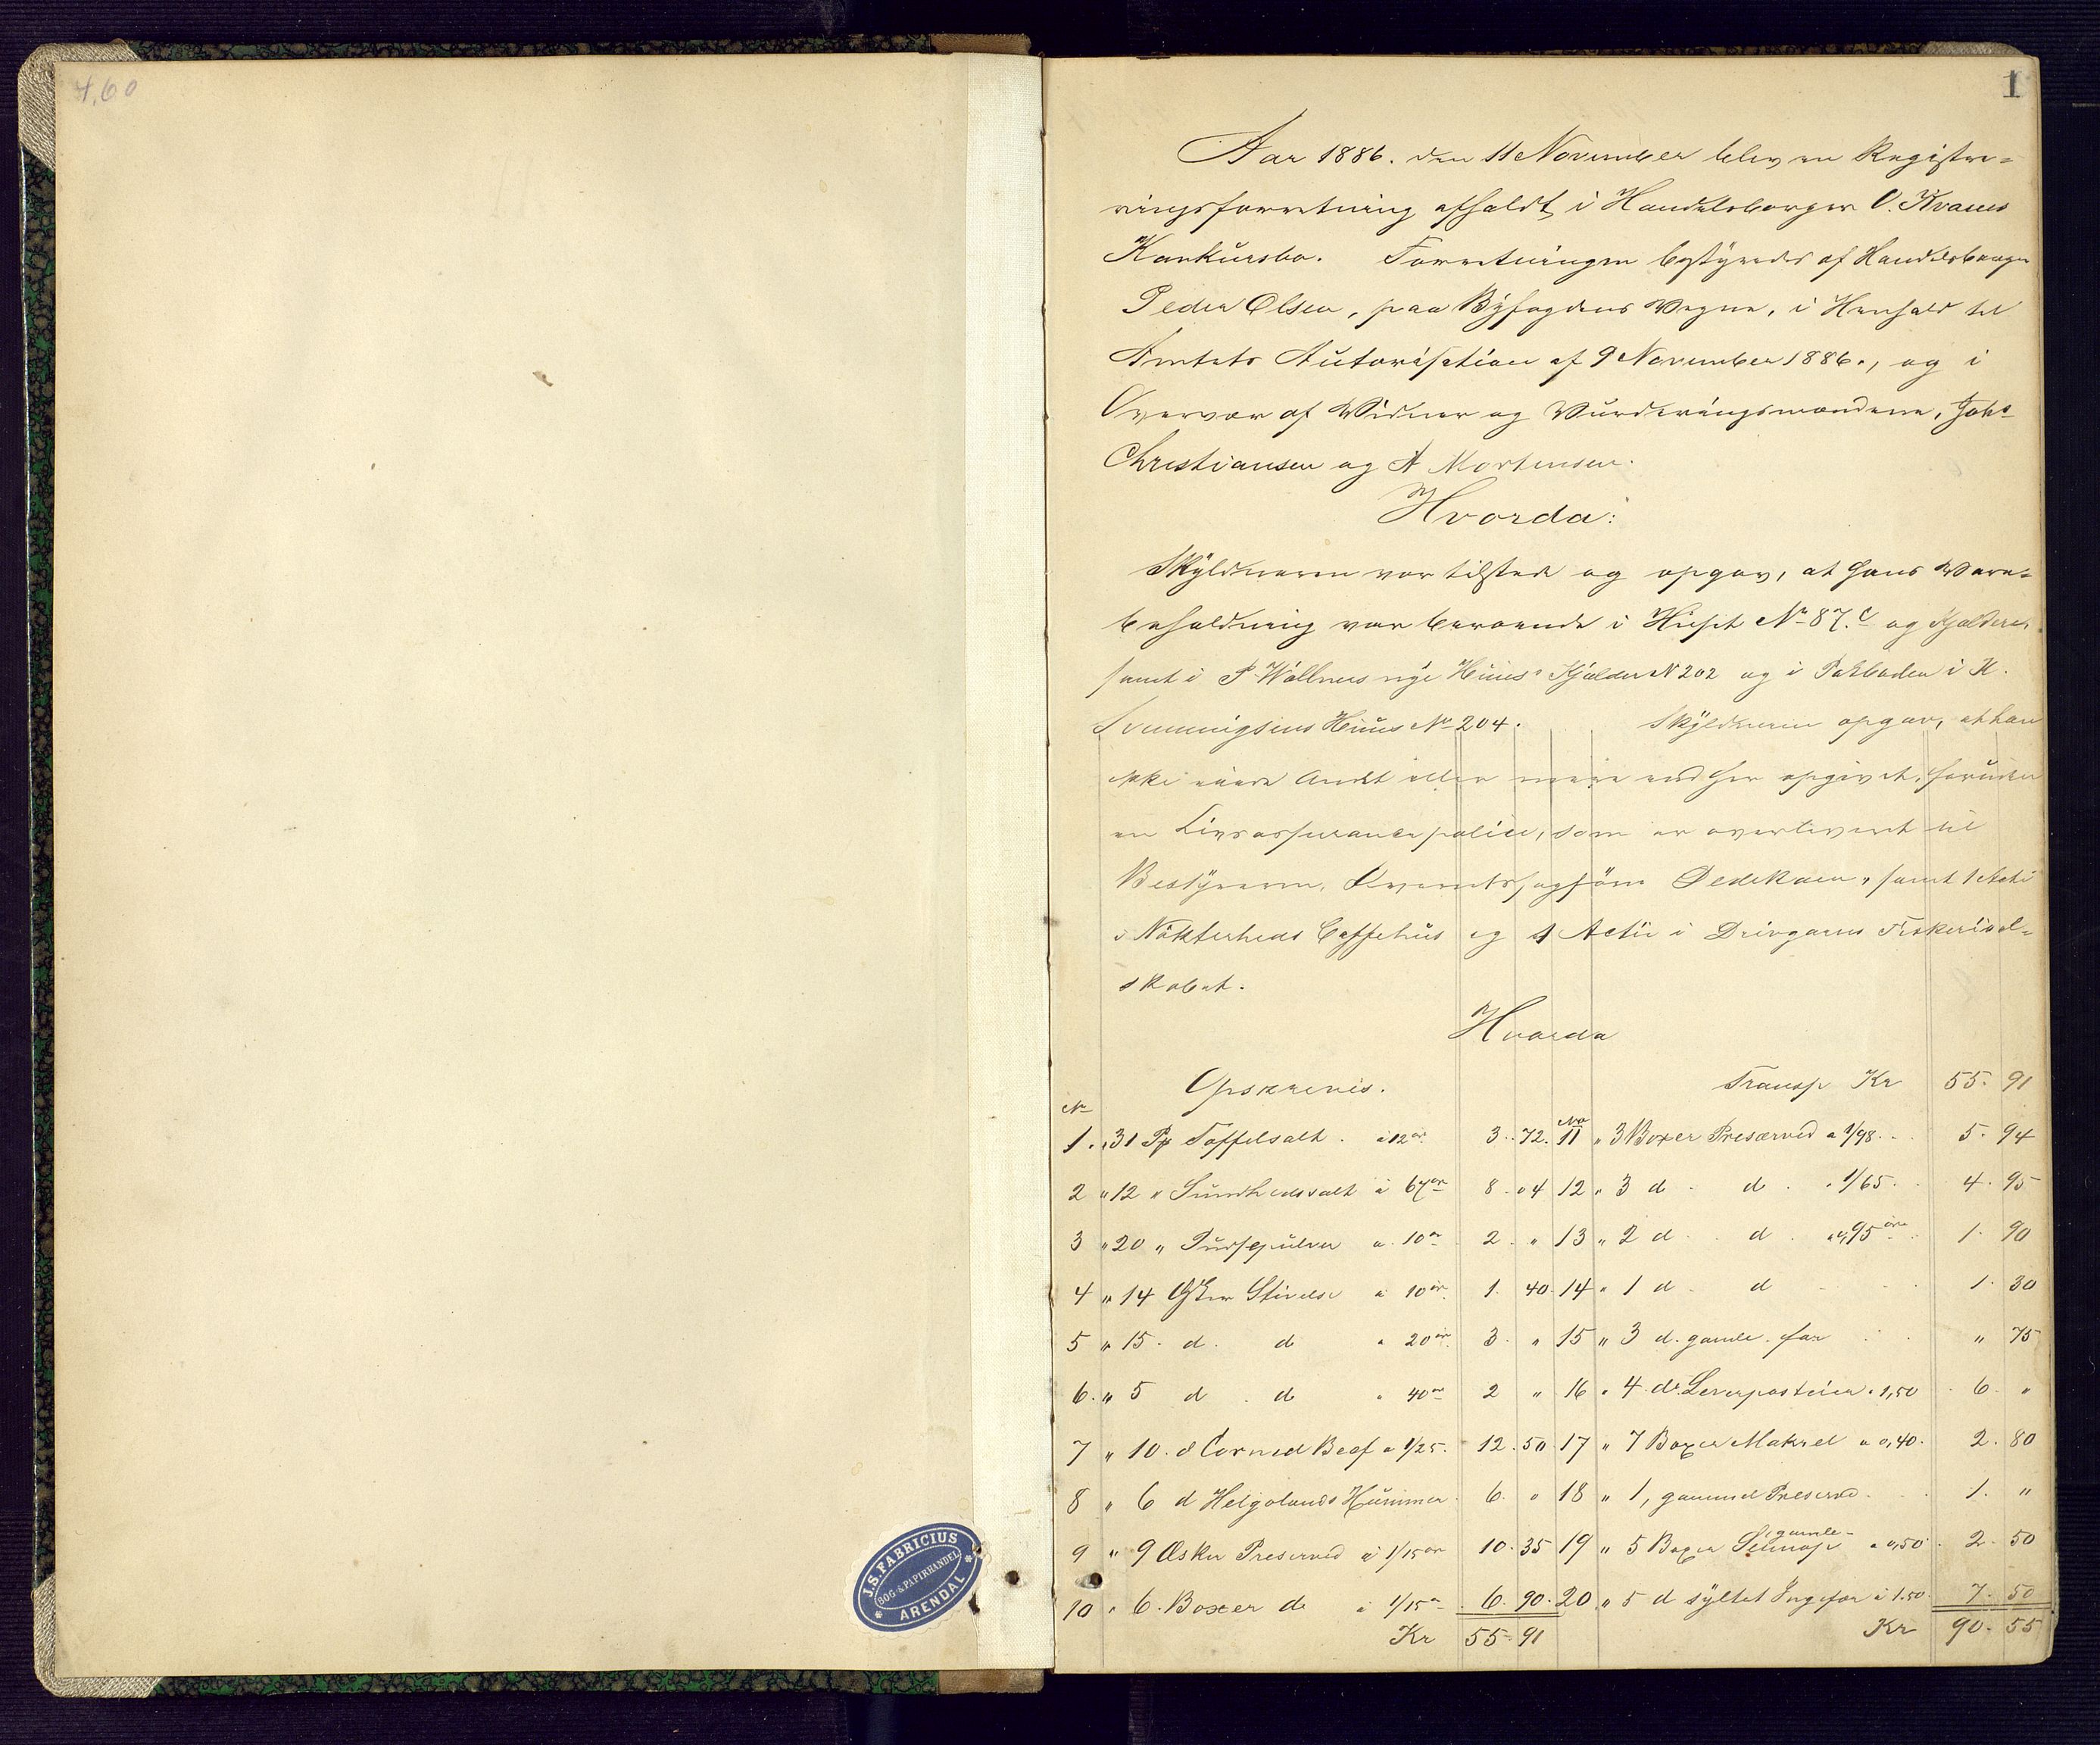 4,60
1
Aar 1886. den 11 November blev en Registre=
ringsforretning afholdt i Handelsborger O. Kvams
Konkursbo. Forretningen bestyredes af Handelsborger
Peder Olsen, paa Byfogdens Vegne, i Henhold til
Amtets Autorisation af 9 November 1886., og i
Overvær af Vidner og Vurderingsmændene, Johs
Christiansen og A Mortensen.
Hvorda:
Skyldneren var tilstede og opgav, at hans Vare=
beholdning var beroende i Huset No 87.c og Kjelderen
samt i P. Wallners nye Huus's Kjelder N 202 og i Pakboden i H.
Svenningsens Huus No 204. Skyldneren opgav, at han
ikke eiede Andet eller mere end her opgivet, foruden
en Livsassurancepolice, som er overleveret til
Bestyreren, Overretssagfører Dedekam, samt 1 Actie
i Nökterheds Caffehus og 1 Actie i Drivgarns Fiskerisel=
skabet.
Hvorda
Opskreves. Transp Kr 55. 91
No
1. " 31 Pk Taffelsalt. à 12 ør 3. 72. No 11 " 3 Boxer Preserved a 1/98. 5. 94
2 " 12 " Sundhedssalt à 67 ør 8. 04 12 " 3 d. d. " 1/65. 4. 95
3 " 20 " Pudsepulver a. 10 ør 2. " 13 " 2 d. d. a 0,95 øre 1. 90
4 " 14 Æsker Stivelse à 10 ør. 1. 40. 14 " 1 d. d 1. 30
5 " 15. d. d " 20 ør. 3. " 15 " 3 d. gamle. for " 75
6. " 5 d. d " 40 ør 2 " 16 " 4. do Leverposteier " 1,50 6. "
7 " 10. d Corned Beef a 1/25. 12. 50 17 " 7 Boxer Makrel a 0,40. 2. 80
8 " 6 d Helgolands Hummer 6. " 18 " 1, gammel Preserved. 1. "
9 " 9 Æsker Preserved à 1/15 ør 10. 35 19 " 5 Boxer gamle Sennop a 0,50. 2. 50
10 " 6. Boxer do à 1/15 ør 6. 90. 20 " 5 d syltet Ingefær à 1.50. 7. 50
Kr 55. 91 Kr 90. 55
J.S. FABRICIUS
BOG- & PAPIRHANDEL
* ARENDAL *